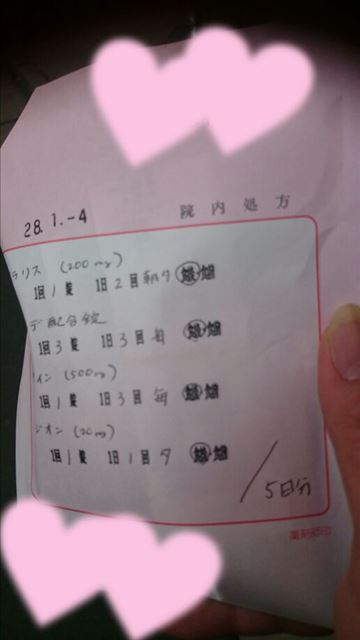 28. 1. -4
院内処方
ラリス (200mg)
1回1錠 1日2回朝夕
デ配合錠
1回3錠 1日3回毎
イン (500mg)
1回1錠 1日3回毎
ジオン (20mg)
1回1錠 1日1回夕
5日分
薬剤師印